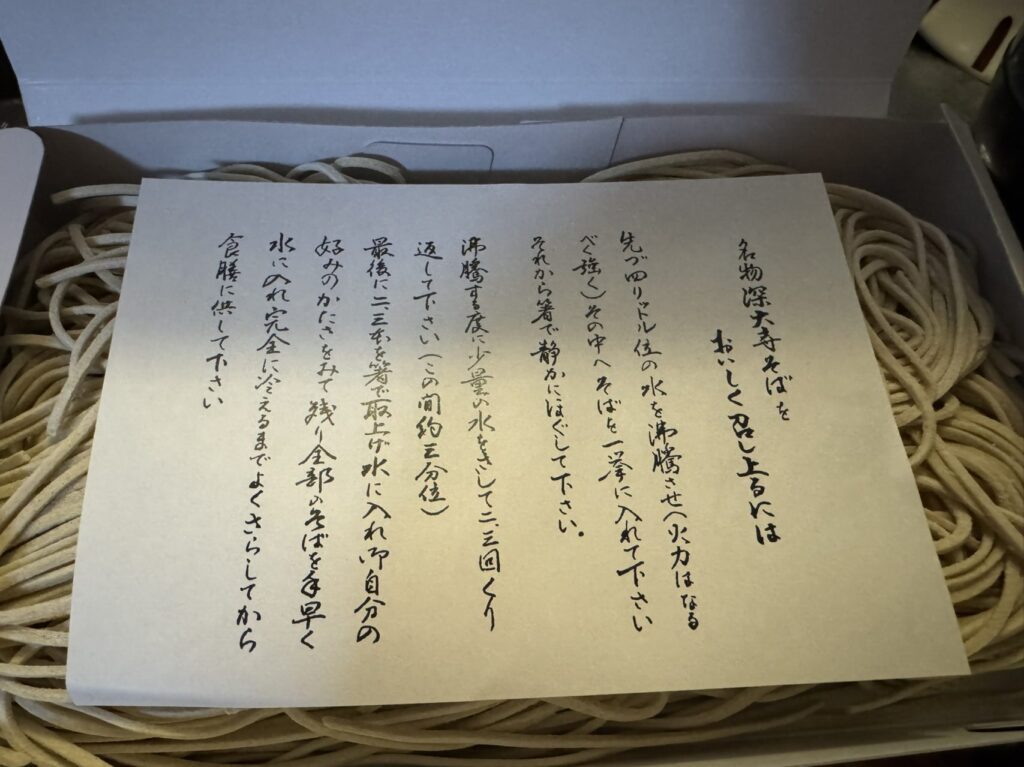 名物深大寺そばを
おいしく召し上るには
先づ四リットル位の水を沸騰させ(火力はなる
べく強く)その中へそばを一挙に入れて下さい
それから箸で静かにほぐして下さい。
沸騰する度に少量の水をさして二、三回くり
返して下さい(この間約三分位)
最後に二、三本を箸で取上げ水に入れ御自分の
好みのかたさをみて残り全部のそばを手早く
水に入れ完全に冷えるまでよくさらしてから
食膳に供して下さい